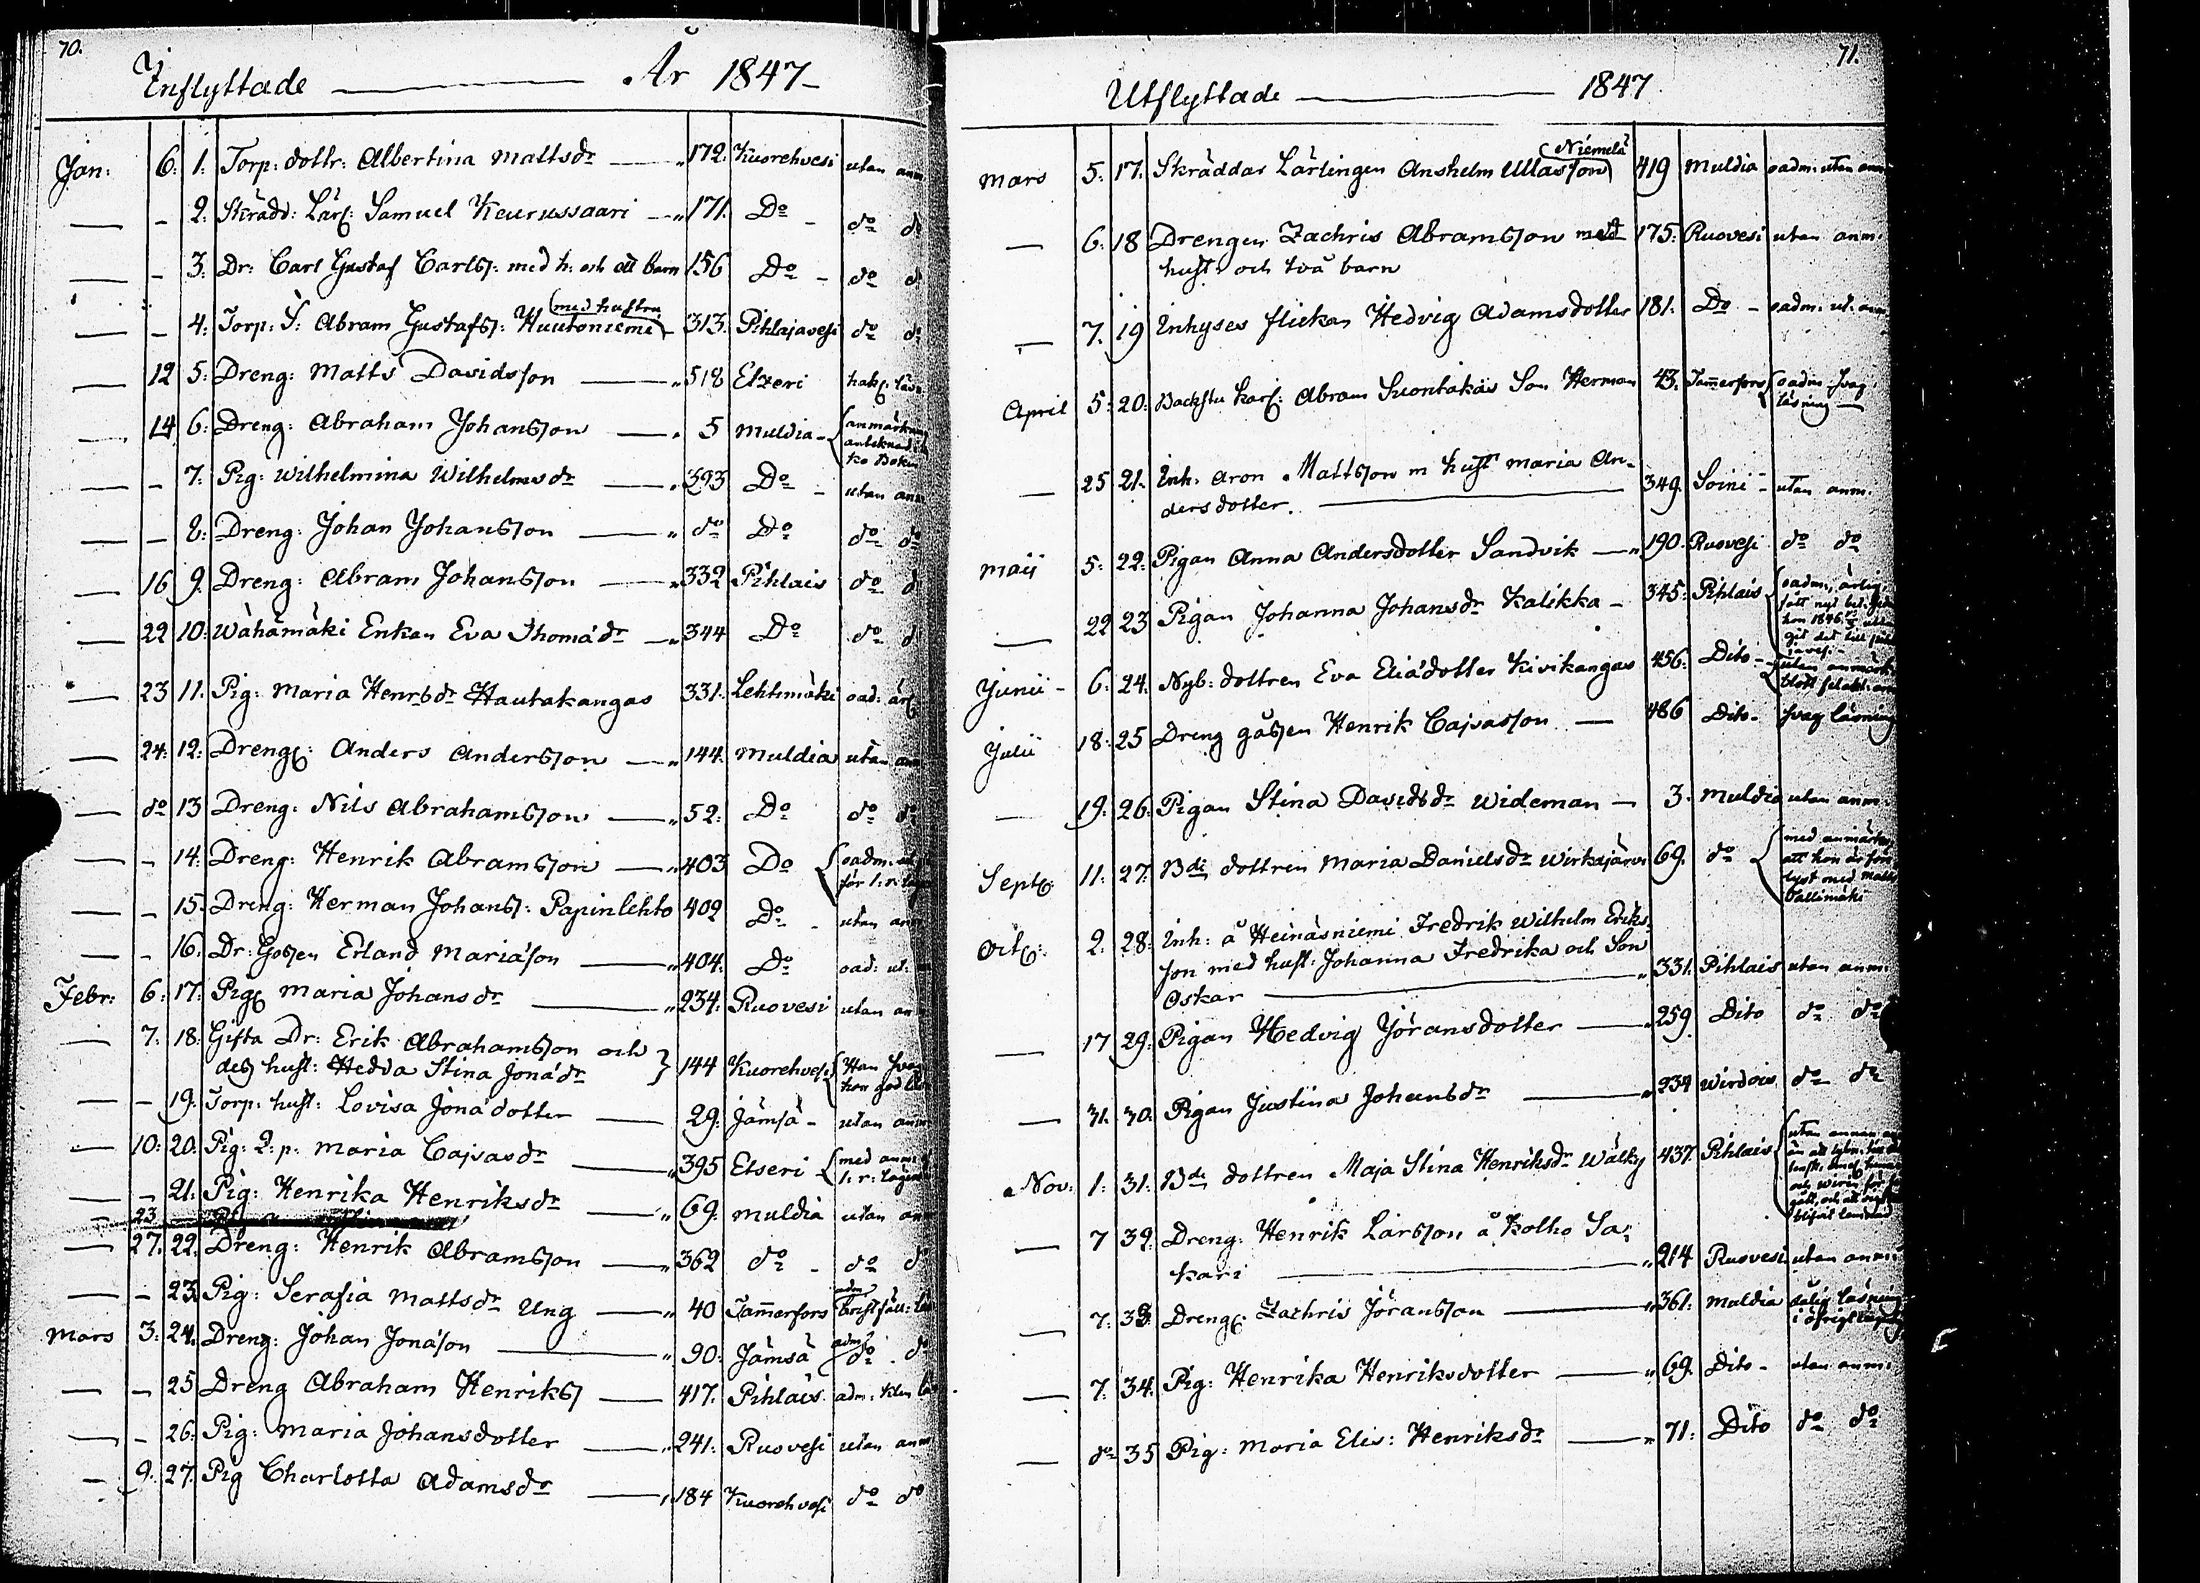 70.
Inflyttade År 1847
Jan: 6. 1. Torp: dottr: Albertina Mattsdr 172. Kuorehvesi utan anm
– 2. Skrädd: Lärl: Samuel Keurussaari 171. Do do d
– 3. Dr: Carl Gustaf Carls: med h: och ett barn 156 Do do d
(med hustru
– 4. Torp: S: Abram Gustafss: Huutoniemi 313. Pihlajavesi do do
12 5. Dreng: Matts Davidsson 518 Etzeri läsn:
14 6. Dreng: Abraham Johansson 5 Muldia
anteknad i
ko Boken
– 7. Pig: Wilhelmina Wilhelmsdr 393 Do utan anm
– 8. Dreng: Johan Johansson do Do do do
16 9. Dreng: Abram Johansson 332 Pihlais do d
22 10. Wähämäki Enkan Eva Thomædr 344 Do do d
23 11. Pig: Maria Henrsdr Hautakangas 331. Lehtimäki oad: ärl
24. 12. Dreng: Anders Andersson 144. Muldia utan anm
do 13 Dreng: Nils Abrahamsson 52. Do do do
– 14. Dreng: Henrik Abramsson 403 Do oadm.
för 1:a
– 15. Dreng: Herman Johanss: Papinlehto 402 Do utan anm
– 16. Dr: Gossen Erland Mariæson 404. Do oad: ut:
Febr: 6. 17. Pig Maria Johansdr 234. Ruovesi utan an
7. 18. Gifta Dr: Erik Abrahamsson och
dess hust: Hedda Stina Jonædr 144 Kuorehvesi Han svag
hon god
– 19. Torp: hust: Lovisa Jonædotter 29. Jämsä utan anm
10. 20. Pig: Q: p: Maria Cajsasdr 395 Etseri med anm:
– 21. Pig: Henrika Henriksdr 69. Muldia utan an
23
27. 22. Dreng: Henrik Abramsson 362 do do d
– 23. Pig: Serafia Mattsdr Ung 40 Tammerfors adm
Mars 3. 24. Dreng: Johan Jonæson 90. Jämsä adm do do
– 25 Dreng Abraham Henriks 417. Pihlais adm: klen
– 26. Pig: Maria Johansdotter 241. Ruovesi utan anm
9. 27. Pig Charlotta Adamsdr 184 Kuorehvesi do do
71.
Utflyttade 1847
(Niemelä
Mars 5. 17. Skräddar Lärlingen Anshelm Ullasson) 419 Muldia oadm: utan anm
6. 18 Drengen Zachris Abramsson med 175. Ruovesi utan anm.
hust: och två barn
7. 19 Inhyses flickan Hedvig Adamsdotter 181. Do oadm: ut: anm
April 5. 20. Backstu karl: Abram Suontakas Son Herman 43. Tammerfors oadm. svag
läsning
25 21. Inh. Aron Mattsson m hust Maria An-
dersdotter. 349. Soini utan anm.
Maij 5. 22. Pigan Anna Andersdotter Sandvik 190. Ruovesi do do
22 23 Pigan Johanna Johansdr Kalikka 345. Pihlais oadm; ärlig,
fått nyt bet.
hon 1846
git det till
javesi
Junii 6. 24. Nyb: dottren Eva Eliædotter Kivikangas 456. Dito utan anmärk
Julii 18. 25 Dreng gossen Henrik Cajsasson 486 Dito svag läsning
19. 26. Pigan Stina Davidsdr Wideman 3. Muldia utan anm:
Sept: 11. 27. Bde dottren Maria Danielsdr Wirkajärvi 69. do med anmärkn
att hon är för
lyst med Matts
Oct: 2. 28. Inh: å Heinäsniemi Fredrik Wilhelm Eriks
son med hust: Johanna Fredrika och Son
Oskar 331. Pihlais utan anm:
17 29. Pigan Hedvig Jöransdotter 259. Dito do do
31. 30. Pigan Justina Johansdr 234 Wirdois do do
Nov: 1. 31. Bde dottren Maja Stina Henriksdr Wälky 437. Pihlais utan annan
7 32. Dreng: Henrik Larsson å Kolho Sa-
kari 214 Ruovesi utan anm:
7. 33. Dreng: Zachris Jöransson 361. Muldia dålig läsning
i öfrigt
7. 34. Pig: Henrika Henriksdotter 69. Dito utan anm:
do 35 Pig: Maria Elis: Henriksdr 71. Dito do do